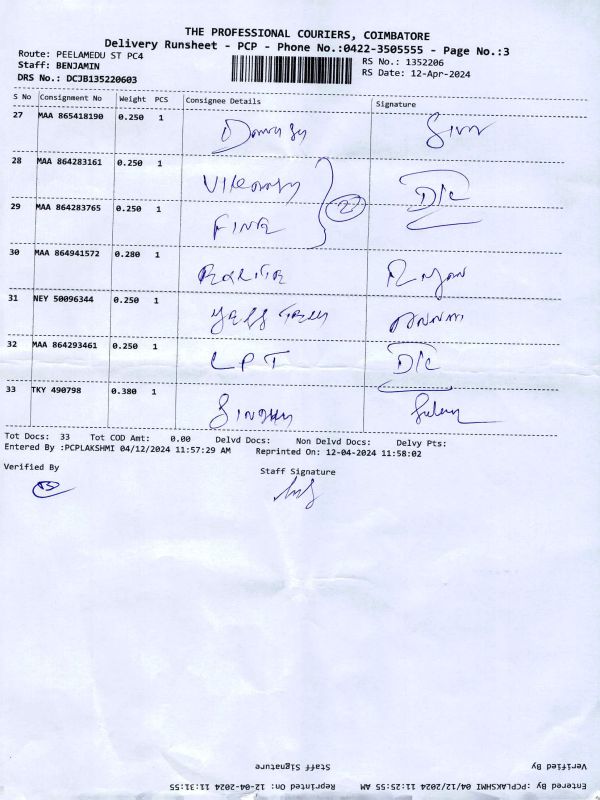 THE PROFESSIONAL COURIERS, COIMBATORE
Delivery Runsheet - PCP - Phone No.:0422-3505555 - Page No.:3
Route: PEELAMEDU ST PC4
RS No.: 1352206
Staff: BENJAMIN
RS Date: 12-Apr-2024
DRS No.: DCJB135220603
S No Consignment No Weight PCS Consignee Details Signature
27 MAA 865418190 0.250 1
28 MAA 864283161 0.250 1 D/c
29 MAA 864283765 0.250 1 2
30 MAA 864941572 0.280 1
31 NEY 50096344 0.250 1
32 MAA 864293461 0.250 1 LPT D/c
33 TKY 490798 0.380 1
Tot Docs: 33 Tot COD Amt: 0.00 Delvd Docs: Non Delvd Docs: Delvy Pts:
Entered By :PCPLAKSHMI 04/12/2024 11:57:29 AM Reprinted On: 12-04-2024 11:58:02
Verified By Staff Signature
Verified By Staff Signature
Entered By :PCPLAKSHMI 04/12/2024 11:25:55 AM Reprinted On: 12-04-2024 11:31:55